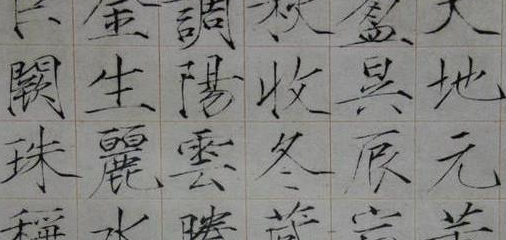 天地元黃
盈昃辰宿
秋收冬藏
調陽雲騰
金生麗水
闕珠稱